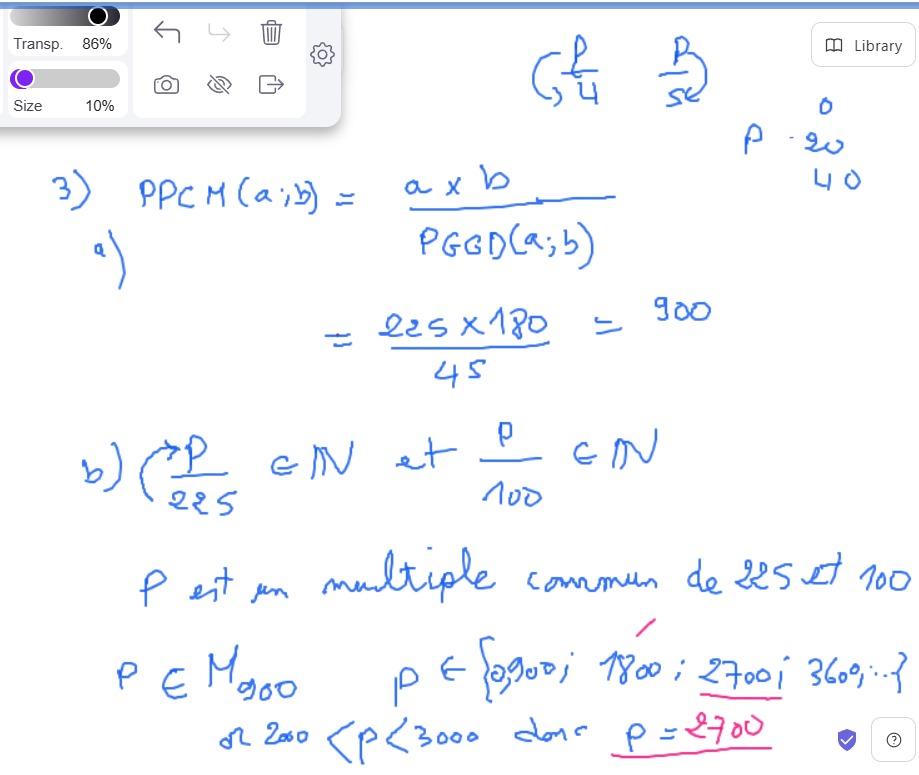 Transp. 86%
Size 10%
Library
P/4 P/5
0
P 20
40
3) PPCM(a;b) = a x b / PGCD(a;b)
a)
= 225 x 180 / 45 = 900
b) P/225 ∈ ℕ et P/100 ∈ ℕ
P est un multiple commun de 225 et 100
P ∈ M₉₀₀ P ∈ {0,900; 1800; 2700; 3600;...}
or 2000 < p < 3000 donc p = 2700